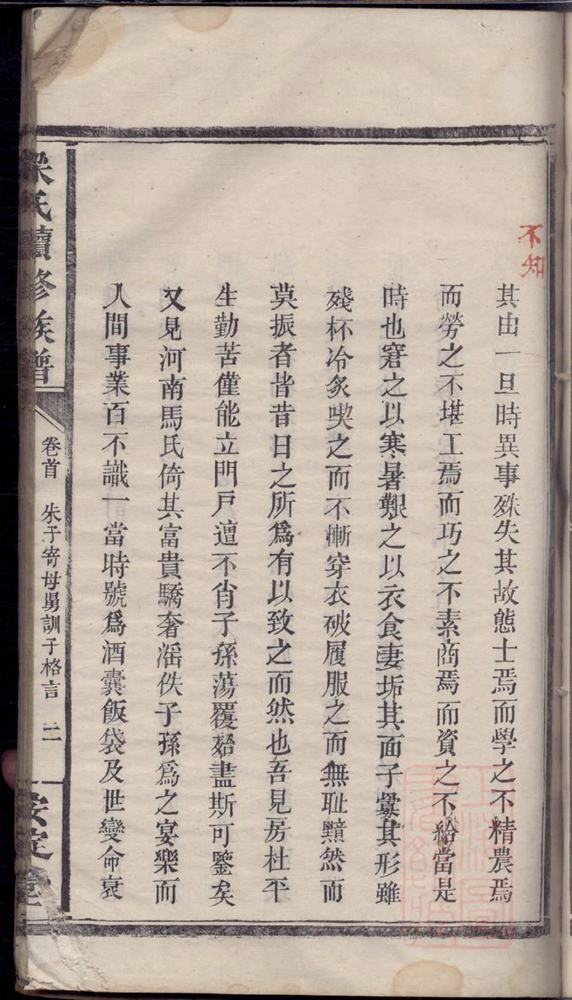 不知
其由一旦時異事殊失其故態士焉而學之不精農焉
而勞之不堪工焉而巧之不素商焉而資之不給當是
時也窘之以寒暑艱之以衣食妻垢其面子霿其形雖
殘杯冷炙喫之而不慚穿衣破履服之而無耻黯然而
莫振者皆昔日之所爲有以致之而然也吾見房杜平
生勤苦僅能立門戸遭不肖子孫蕩覆殆盡斯可鑒矣
又見河南馬氏倚其富貴驕奢滛佚子孫爲之宴樂而
人間事業百不識一當時號爲酒囊飯袋及世變命衰
氏續修族譜
卷首 朱子寄母舅訓子格言 三
安定堂